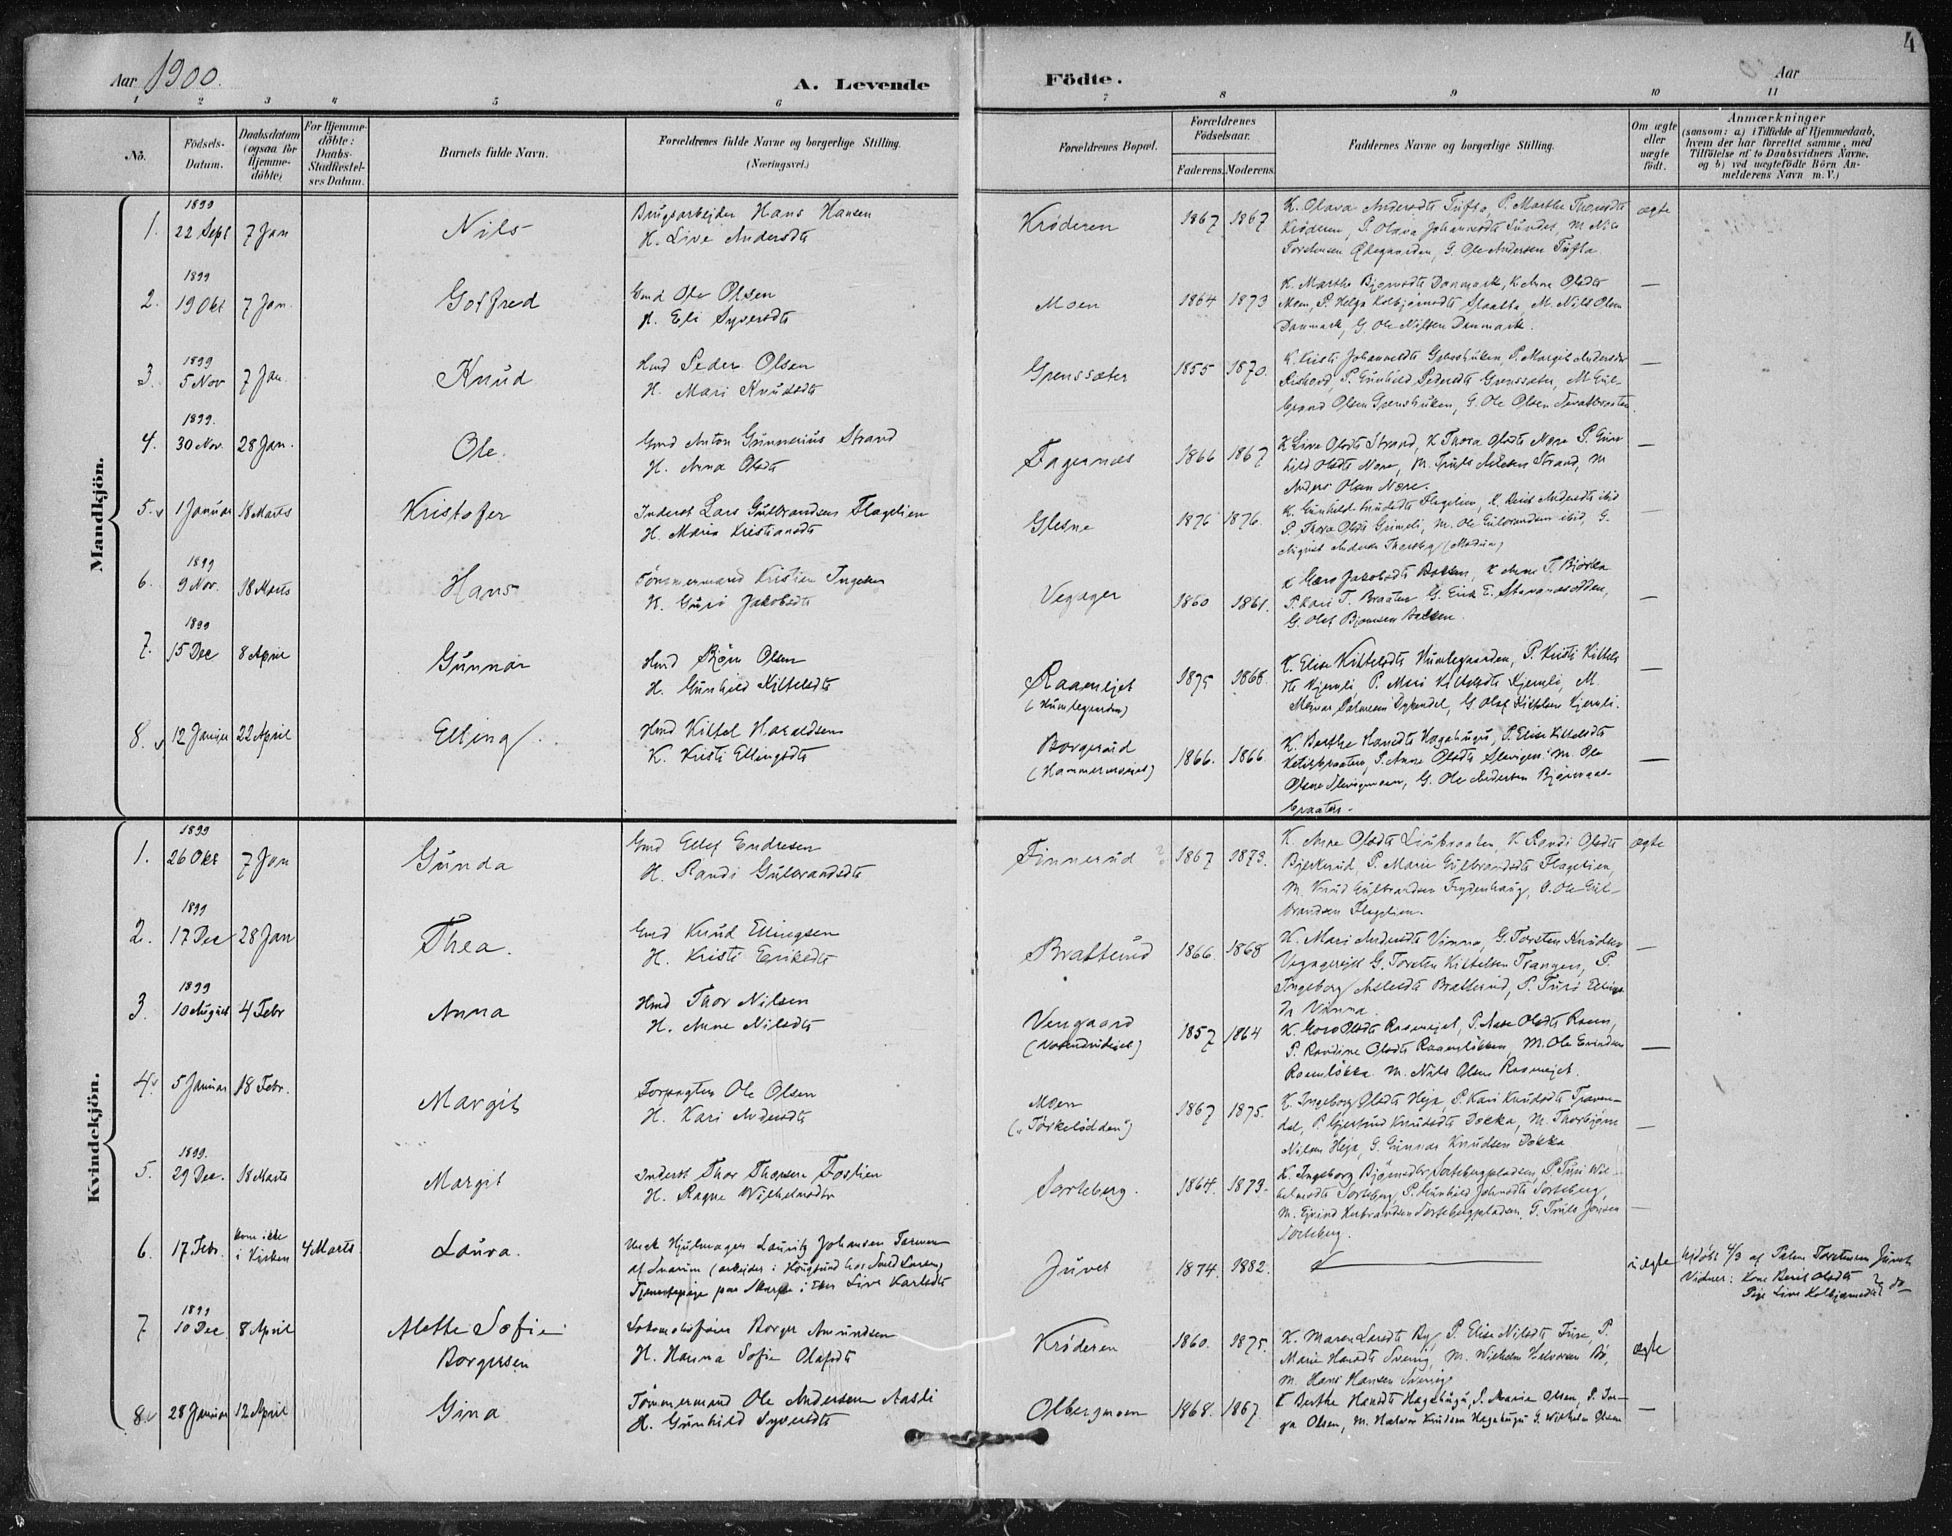 4
Aar 1900.
A. Levende Födte.
Aar
1 2 3 4 5 6 7 8 9 10 11
No.
Födsels-Datum.
Daabsdatum (ogsaa for Hjemme-döbte)
For Hjemme-döbte: Daabs-Stadfæstel-ses Datum.
Barnets fulde Navn.
Forældrenes fulde Navne og borgerlige Stilling. (Næringsvei.)
Forældrenes Bopæl.
Forældrenes Födselsaar.
Faderens. Moderens.
Faddernes Navne og borgerlige Stilling.
Om ægte eller uægte födt.
Anmærkninger
(saasom: a) i Tilfælde af Hjemmedaab, hvem der har forrettet samme, med Tilföielse af to Daabsvidners Navne, og b) ved uægtefödte Börn An-melderens Navn m. V.)
Mandkjön.
1. 1899 22 Sept 7 Jan Nils
Brugsarbejder Hans Hansen
H. Live Andersdtr
Krøderen 1867 1867
K. Olava Andersdtr Tufto, P. Marthe Thorsdtr
Krøderen, P. Olava Johannesdtr Sundet, M Nils
Torstensen Ødegaarden, G. Ole Andersen Tufto
ægte
2. 1899 19 Okt 7 Jan. Gotfred
Gmd Ole Olsen
H. Eli Syversdtr
Moen 1864 1873
K. Marthe Bjørnsdtr Danmark, K Anne Olsdtr
Moen, P. Helga Kolbjørnsdtr, M. Nils Olsen
Danmark, G Ole Nilsen Danmark.
—
3. 1899 5 Nov 7 Jan. Knud
Hmd Peder Olsen
H. Mari Knudsdtr
Grenssæter 1855 1870.
K. Kristi Johannesdtr, P. Margit Andersdtr
P. Gunhild Pedersdtr Grenssæter, M Gul-
brand Olsen, G. Ole Olsen
—
4. 1899. 30 Nov. 28 Jan. Ole.
Gmd Anton Gunnerius Strand
H. Anna Olsdtr
Fagernæs 1866 1867
K Live Olsdtr Strand, K Thora Olsdtr Nære P. Gun-
hild Olsdtr Nære, M. Truls Strand, M
Anders Olsen Nære.
—
5. 1 Januar 18 Marts Kristofer
Inderst Lars Gulbrandsen Flagelien
H. Maria Kristiansdtr
Glesne 1876 1876.
K. Gunhild Knudsdtr Flagelien, K. Andersdtr ibid
P. Thora Olsdtr Grimeli, M. Ole Gulbrandsen ibid, G.
August Andersen (Modum)
—
6. 1899 9 Nov. 18 Marts Hans
Tømmermand Kristian
H. Guri Jakobsdtr
Vegager 1860 1861.
K Jakobsdtr Bakken, K Anne P. Bjørke
P. Kari T. Braaten G. Erik E.
G. Olaf Bjørnsen Bakken.
—
7. 1899 15 Dec 8 April Gunnar
Hmd Bjørn Olsen
H. Gunhild Kittelsdtr
Raamejet (Humlegaarden) 1875 1868.
K. Elise Kittelsdtr Humlegaarden, P. Kristi Kittels
dtr Kjernli, P. Mari Kittelsdtr Kjernli, M.
G. Olaf Kittelsen Kjernli.
—
8. 12 Januar 22 April Elling
Hmd Kittel Haraldsen
H. Kristi Ellingsdtr
Borgerud (Hammerneset) 1866. 1866.
K. Berthe Hansdtr Hagahugu, P. Elise Kittelsdtr
Ketilsbraaten, P. Anne Olsdtr M. Ole
Olsen, G. Ole Andersen
braaten.
—
Kvindekjön.
1. 1899 26 Okt 7 Jan Gunda
Gmd Ellef Endresen
H. Randi Gulbrandsdtr
Finnerud 1867 1873.
K. Anne Olsdtr Liubraaten, K. Randi Olsdtr
Bjerkerud, P. Marie Gulbrandsdtr Flagelien,
M. Knud Gulbrandsen Frydenhaug, G. Ole Gul-
brandsen Flagelien.
ægte
2. 1899 17 Dec 28 Jan Thea.
Gmd Knud Ellingsen
H. Kristi Eriksdtr
Bratterud 1866. 1868
K. Mari Andersdtr Vinna, G. Torsten Knudsen
Vegagerejet G. Torsten Kittelsen Trangen, P
Ingeborg Aslesdtr Bratterud, P. Turi Ellings-
dtr Vinna.
—
3. 1899 10 August 4 Febr Anna
Hmd Thor Nilsen
H. Anne Nilsdtr
Vengaard 1857 1864
K. Goro Olsdtr Raamejet, P. Aase Olsdtr Raaen,
P. Randine Olsdtr Raaenløkken, M. Ole
Raaenløkka M. Nils Olsen Raamejet.
—
4. 5 Januar 18 Febr. Margit
Forpagter Ole Olsen
H. Kari Andersdtr
Moen ("Torkelsødden") 1867 1875.
K. Ingeborg Olsdtr Heja, P. Kari Knudsdtr Traven-
dal, P. Gjertrud Knudsdtr Dokka, M. Thorbjørn
Nilsen Heja, G. Gunnar Knudsen Dokka
—
5. 1899. 29 Dec. 18 Marts Margit
Inderst Thor Thorsen Fostien
H. Ragne Wilhelmsdtr
Sorteberg. 1864. 1873.
K. Ingeborg Bjørnsdtr Sortebergpladsen, P. Turi Wil-
helmsdtr Sorteberg, P. Gunhild Johnsdtr Sorteberg,
M. Ejvind Herbrandsen Sortebergpladsen, G. Truls Jonsen
Sorteberg.
—
6. 17 Febr. kom ikke i Kirken 4 Marts Laura.
Unck Hjulmager Lauritz Johansen Tormoen
af Snarum (arbejder i Hougsund hos Larsen)
Tjenestepige paa i Eker Live Karlsdtr
Juvet 1874. 1882.
uægte
Hjdøbt 4/3 af Palme Torstensen Juvet
Vidner: Kone Berit Olsdtr
Pige Live Kolbjørnsdtr do
7 1899 10 Dec. 8 April Alette Sofie Borgersen
Lokomotivfører Borger Amundsen
H. Hanna Sofie Olafsdtr
Krøderen 1860. 1875.
K. Maren Larsdtr By, P. Elise Nilsdtr Fure, P.
Marie Hansdtr Sverig, M. Wilhelm Halvorsen Bø,
M. Hans Hansen Sverige
ægte
8. 28 Januar 12 April Gina
Tømmermand Ole Andersen Aasli
H. Gunhild Syversdtr
Olbergmoen 1868. 1867.
K Berthe Hansdtr Hagahugu, P. Marie Olsen, P. Tor-
ga Olsen, M. Halvor Knudsen Hagahugu G. Wilhelm Olsen
—